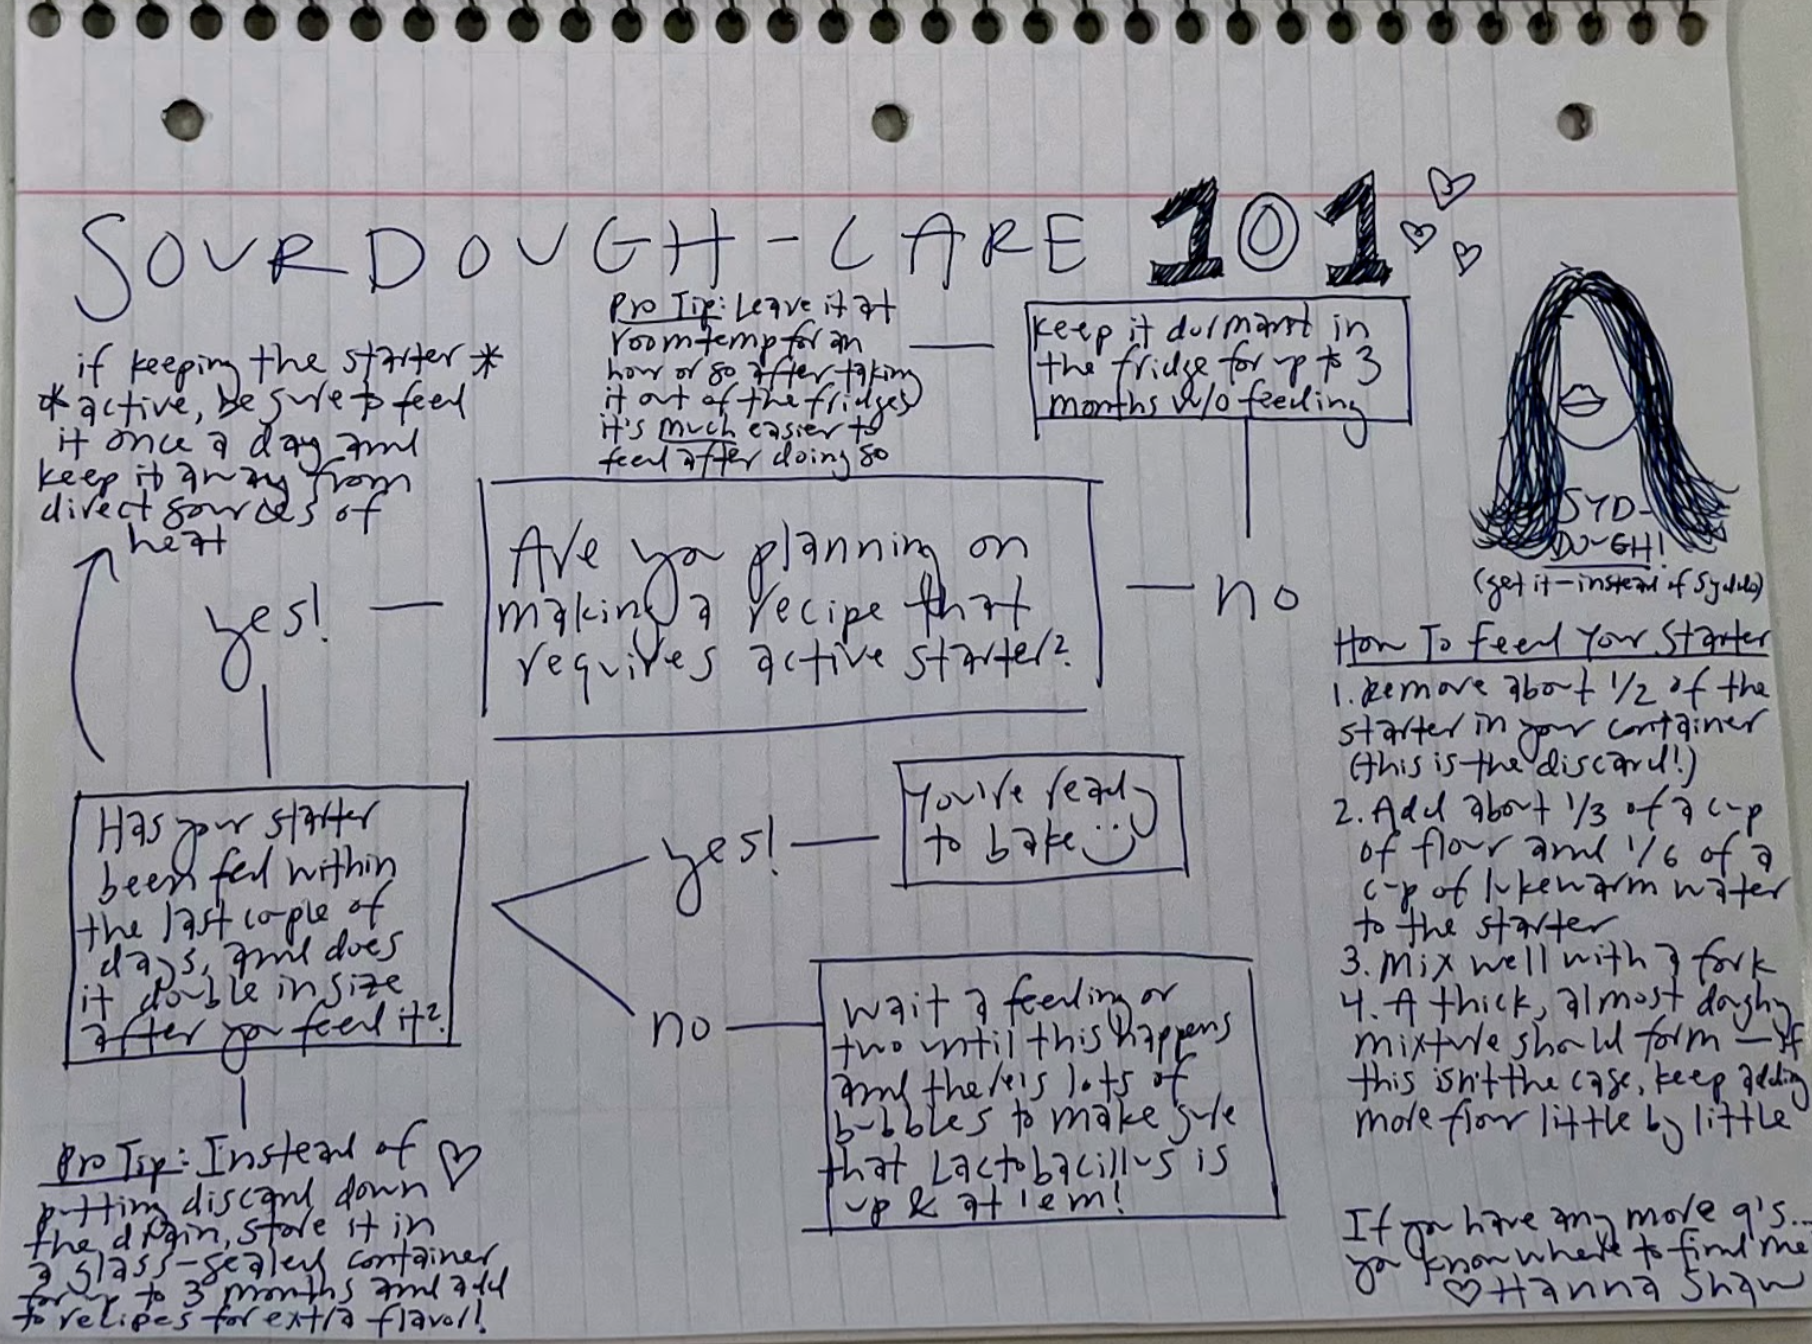 SOURDOUGH-CARE 101
if keeping the starter *
* active, be sure to feed
it once a day and
keep it away from
direct sources of
heat
Pro Tip: Leave it at
room temp for an
hour or so after taking
it out of the fridge;
it's much easier to
feed after doing so
keep it dormant in
the fridge for up to 3
months w/o feeding
SYD-
DOUGH!
(get it - instead of Sydob)
Are you planning on
making a recipe that
requires active starter?
yes!
no
Has your starter
been fed within
the last couple of
days, and does
it double in size
after you feed it?
yes!
You're ready
to bake
no
Wait a feeding or
two until this happens
and there's lots of
bubbles to make sure
that Lactobacillus is
up & at 'em!
Pro Tip: Instead of
putting discard down
the drain, store it in
a glass-sealed container
for up to 3 months and add
to recipes for extra flavor!
How To Feed Your Starter
1. Remove about 1/2 of the
starter in your container
(this is the discard!)
2. Add about 1/3 of a cup
of flour and 1/6 of a
cup of lukewarm water
to the starter
3. Mix well with a fork
4. A thick, almost doughy
mixture should form - if
this isn't the case, keep adding
more flour little by little
If you have any more q's...
you know where to find me
Hanna Shaw